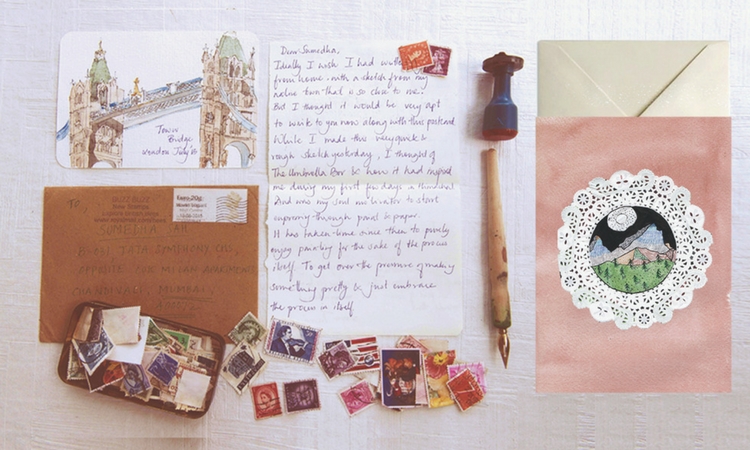 Tower
Bridge
London July'
Dear Sumedha,
Ideally I wish I had
from home with a sketch from my
native town that is so close to me.
But I thought it would be very apt
to write to you now along with this postcard
While I made this very quick &
rough sketch yesterday, I thought of
The Umbrella Box & how it had
me during my first few days in
And was my soul motivator to start
expressing through paint & paper.
It has taken time since then to purely
enjoy painting for the sake of the process
itself. To get over the pressure of making
something pretty & just embrace
the process in itself
TO,
SUMEDHA SAH
TATA SYMPHONY, CHS,
OPPOSITE MILAN APARTMENT
CHANDIVALI, MUMBAI